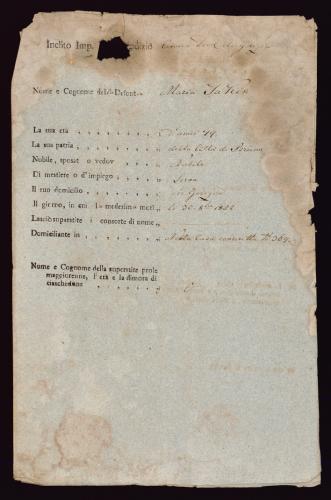 Inclito Imp. dizio
Nome e Cognome del Defunt Maria
La sua età . . . . . . . . d'anni 79.
La sua patria . . . . . . . della Città di
Nobile, sposat o vedov . . . . Nubile
Di mestiere o d'impiego . . . . Serva
Il suo domicilio . . . . . . in Gorizia
Il giorno, in cui l medesim morì . le 30. 1822
Lasciò superstite i consorte di nome .
Domiciliante in . . . . . . Nella Casa No 369.
Nome e Cognome della superstite prole
maggiorenne, l' età e la dimora di
ciascheduno . . . . . .